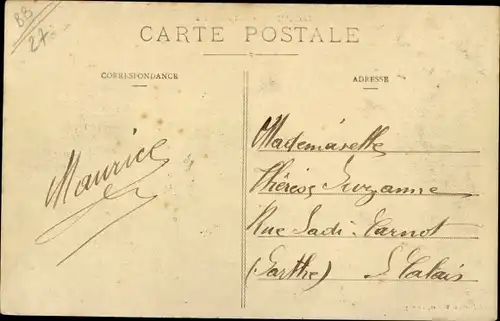 88
27
CARTE POSTALE
CORRESPONDANCE
ADRESSE
Maurice
Mademoiselle
Thérèse Suzanne
Rue Sadi-Carnot
(Sarthe) St Calais